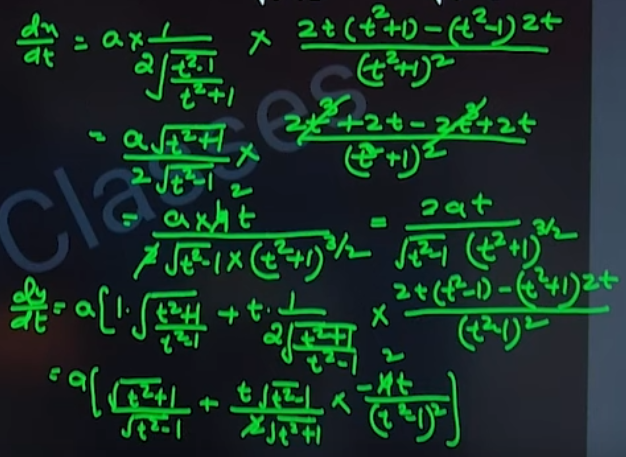 dx/dt = a × 1/(2√((t²-1)/(t²+1))) × (2t(t²+1) - (t²-1)2t)/(t²+1)²
= a√(t²+1)/(2√(t²-1)) × (2t³ + 2t - 2t³ + 2t)/(t²+1)²
= (a × 4 2 t)/(2√(t²-1) × (t²+1)^3/2) = 2at/(√(t²-1) (t²+1)^3/2)
dy/dt = a[1·√((t²+1)/(t²-1)) + t·1/(2√((t²+1)/(t²-1))) × (2t(t²-1) - (t²+1)2t)/(t²-1)²
= a[√(t²+1)/√(t²-1) + t√(t²-1)/(2√(t²+1)) × (-4 2 t)/(t²-1)²]
Classes